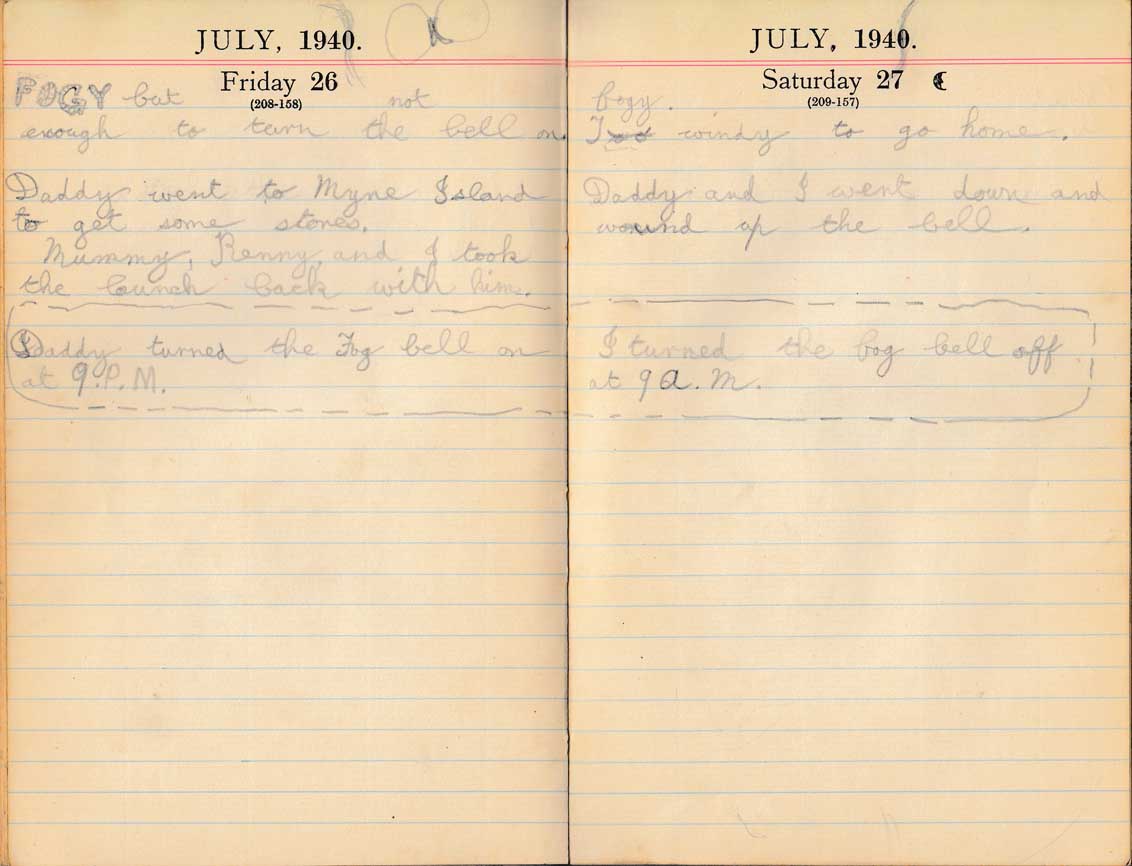 JULY, 1940.
Friday 26
(208-158)
FOGY but not
enough to turn the bell on.
Daddy went to Myne Island
to get some stores.
Mummy, Renny, and I took
the launch back with him.
Daddy turned the Fog bell on
at 9.P.M.
JULY, 1940.
Saturday 27
(209-157)
fogy.
Too windy to go home.
Daddy and I went down and
wound up the bell.
I turned the fog bell off
at 9 a.m.